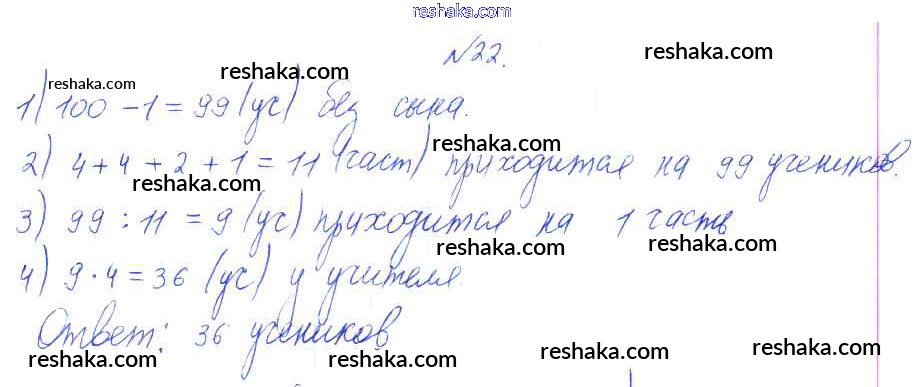 reshaka.com
№22.
reshaka.com
reshaka.com
reshaka.com
1) 100 - 1 = 99 (уч) без сына.
reshaka.com
2) 4 + 4 + 2 + 1 = 11 (част) приходится на 99 учеников.
reshaka.com
reshaka.com
3) 99 : 11 = 9 (уч) приходится на 1 часть
reshaka.com
reshaka.com
4) 9 · 4 = 36 (уч) у учителя.
reshaka.com
Ответ: 36 учеников
reshaka.com
reshaka.com
reshaka.com
reshaka.com